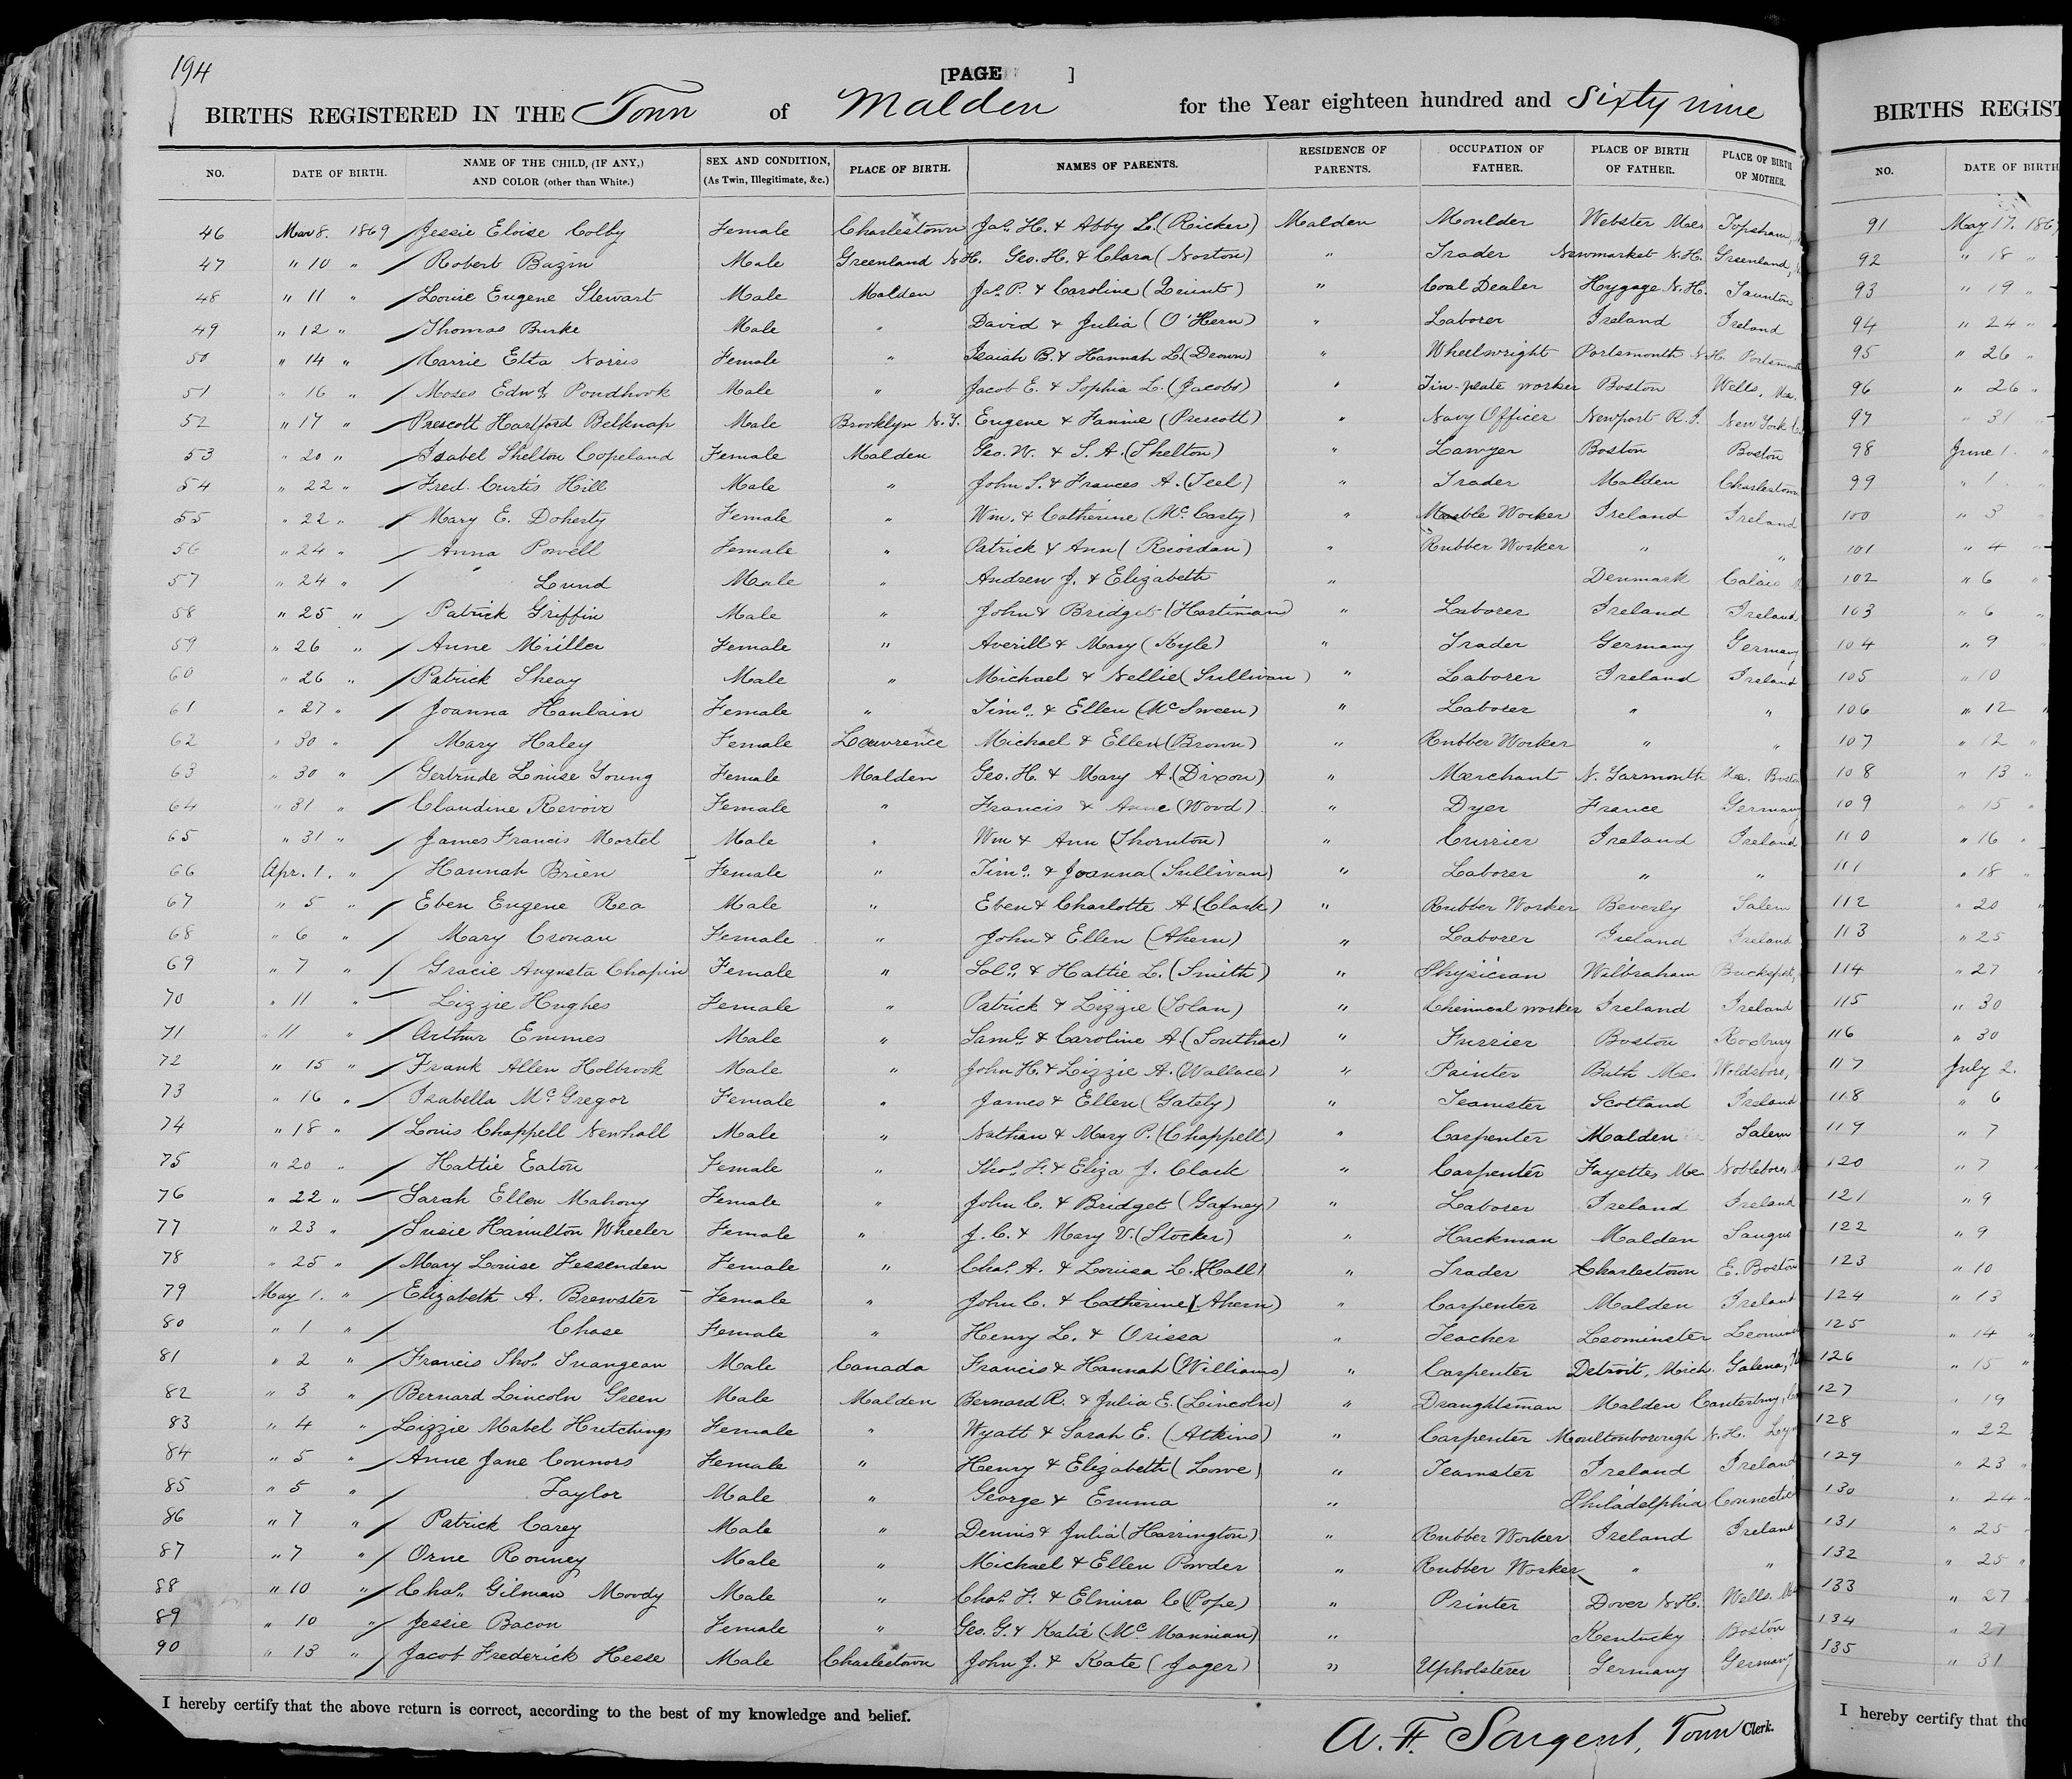 194
[PAGE ]
BIRTHS REGISTERED IN THE Town of Malden for the Year eighteen hundred and Sixty nine
NO. DATE OF BIRTH. NAME OF THE CHILD, (IF ANY,) AND COLOR (other than White.) SEX AND CONDITION, (As Twin, Illegitimate, &c.) PLACE OF BIRTH. NAMES OF PARENTS. RESIDENCE OF PARENTS. OCCUPATION OF FATHER. PLACE OF BIRTH OF FATHER. PLACE OF BIRTH OF MOTHER.
46 Mar 8. 1869 Jessie Eloise Colby Female Charlestown Jas. H. & Abby L. (Ricker) Malden Moulder Webster Topsham,
47 " 10 " Robert Bazin Male Greenland N.H. Geo. H. & Clara (Norton) " Trader Newmarket N.H. Greenland,
48 " 11 " Louie Eugene Stewart Male Malden Jas. P. & Caroline " Coal Dealer N.H. Taunton
49 " 12 " Thomas Burke Male " David & Julia (O'Hern) " Laborer Ireland Ireland
50 " 14 " Carrie Etta Norris Female " Isaiah B. & Hannah L. (Drown) " Wheelwright Portsmouth N.H. Portsmouth
51 " 16 " Moses Edwd. Pondhook Male " Jacob E. & Sophia L. (Jacobs) " Tin-plate worker Boston Wells, Me.
52 " 17 " Prescott Hartford Belknap Male Brooklyn N.Y. Eugene & Fannie (Prescott) " Navy Officer Newport R.I. New York
53 " 20 " Isabel Shelton Copeland Female Malden Geo. W. & S. A. (Shelton) " Lawyer Boston Boston
54 " 22 " Fred. Curtis Hill Male " John S. & Frances A. (Teel) " Trader Malden Charlestown
55 " 22 " Mary E. Doherty Female " Wm. & Catherine (Mc Carty) " Marble Worker Ireland Ireland
56 " 24 " Anna Powell Female " Patrick & Ann (Riordan) " Rubber Worker " "
57 " 24 " Lund Male " Andrew J. & Elizabeth " Denmark Calais
58 " 25 " Patrick Griffin Male " John & Bridget (Hartiman) " Laborer Ireland Ireland
59 " 26 " Anne Müller Female " Averill & Mary (Kyle) " Trader Germany Germany
60 " 26 " Patrick Sheay Male " Michael & Nellie (Sullivan) " Laborer Ireland Ireland
61 " 27 " Joanna Hanlain Female " Timo. & Ellen (Mc Sween) " Laborer " "
62 " 30 " Mary Haley Female Lawrence Michael & Ellen (Brown) " Rubber Worker " "
63 " 30 " Gertrude Louise Young Female Malden Geo. H. & Mary A. (Dixon) " Merchant N. Yarmouth Me. Boston
64 " 31 " Claudine Revoir Female " Francis & Anne (Wood) " Dyer France Germany
65 " 31 " James Francis Mortel Male " Wm & Ann (Thornton) " Currier Ireland Ireland
66 Apr. 1. " Hannah Brien Female " Timo. & Joanna (Sullivan) " Laborer " "
67 " 5 " Eben Eugene Rea Male " Eben & Charlotte A. (Clark) " Rubber Worker Beverly Salem
68 " 6 " Mary Cronan Female " John & Ellen (Ahern) " Laborer Ireland Ireland
69 " 7 " Gracie Augusta Chapin Female " Solo. & Hattie L. (Smith) " Physician Wilbraham Bucksport,
70 " 11 " Lizzie Hughes Female " Patrick & Lizzie (Tolan) " Chemical worker Ireland Ireland
71 " 11 " Arthur Emmes Male " Saml. & Caroline A. (Southac) " Furrier Boston Roxbury
72 " 15 " Frank Allen Holbrook Male " John H. & Lizzie A. (Wallace) " Painter Bath Me. Woldsboro,
73 " 16 " Isabella Mc Gregor Female " James & Ellen (Gately) " Teamster Scotland Ireland
74 " 18 " Louis Chappell Newhall Male " Nathan & Mary P. (Chappell) " Carpenter Malden Salem
75 " 20 " Hattie Eaton Female " Thos. F. & Eliza J. Clark " Carpenter Fayette Me Nobleboro,
76 " 22 " Sarah Ellen Mahony Female " John C. & Bridget (Gafney) " Laborer Ireland Ireland
77 " 23 " Susie Hamilton Wheeler Female " J. C. & Mary V. (Stocker) " Hackman Malden Saugus
78 " 25 " Mary Louise Fessenden Female " Chas. A. & Louisa L. (Hall) " Trader Charlestown E. Boston
79 May 1. " Elizabeth A. Brewster Female " John C. & Catherine (Ahern) " Carpenter Malden Ireland
80 " 1 " Chase Female " Henry L. & Orissa " Teacher Leominster Leomin
81 " 2 " Francis Thos. Suangean Male Canada Francis & Hannah (Williams) " Carpenter Detroit, Mich. Galena,
82 " 3 " Bernard Lincoln Green Male Malden Bernard R. & Julia E. (Lincoln) " Draughtsman Malden Canterbury,
83 " 4 " Lizzie Mabel Hutchings Female " Wyatt & Sarah E. (Atkins) " Carpenter Moultonborough N.H. Lyn
84 " 5 " Anne Jane Connors Female " Henry & Elizabeth (Lowe) " Teamster Ireland Ireland
85 " 5 " Taylor Male " George & Emma " Philadelphia Connectic
86 " 7 " Patrick Carey Male " Dennis & Julia (Harrington) " Rubber Worker Ireland Ireland
87 " 7 " Orne Rouney Male " Michael & Ellen Powder " Rubber Worker " "
88 " 10 " Chas. Gilman Moody Male " Chas. F. & Elmira C (Pope) " Printer Dover N.H. Wells.
89 " 10 " Jessie Bacon Female " Geo. G. & Katie (Mc Mannian) " Kentucky Boston
90 " 13 " Jacob Frederick Hesse Male Charlestown John J. & Kate (Jager) " Upholsterer Germany Germany
I hereby certify that the above return is correct, according to the best of my knowledge and belief.
A. F. Sargent, Town Clerk.
BIRTHS REGIST
NO. DATE OF BIRTH
91 May 17. 186
92 " 18 "
93 " 19 "
94 " 24 "
95 " 26 "
96 " 26 "
97 " 31
98 June 1. "
99 " 1
100 " 3
101 " 4
102 " 6
103 " 6
104 " 9
105 " 10
106 " 12
107 " 12
108 " 13
109 " 15
110 " 16
111 " 18
112 " 20
113 " 25
114 " 27
115 " 30
116 " 30
117 July 2.
118 " 6
119 " 7
120 " 7
121 " 9
122 " 9
123 " 10
124 " 13
125 " 14
126 " 15
127 " 19
128 " 22
129 " 23
130 " 24
131 " 25
132 " 25
133 " 27
134 " 27
135 " 31
I hereby certify that the